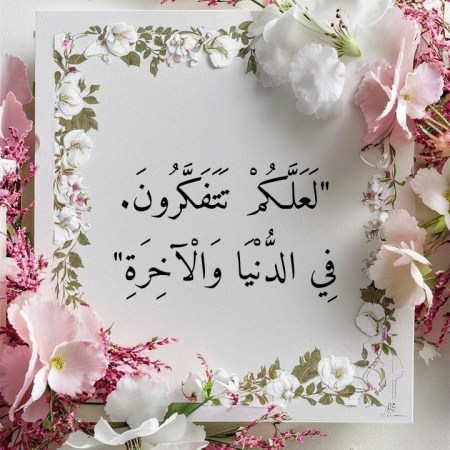 "لَعَلَّكُمْ تَتَفَكَّرُونَ.
فِي الدُّنْيَا وَالْآخِرَةِ"